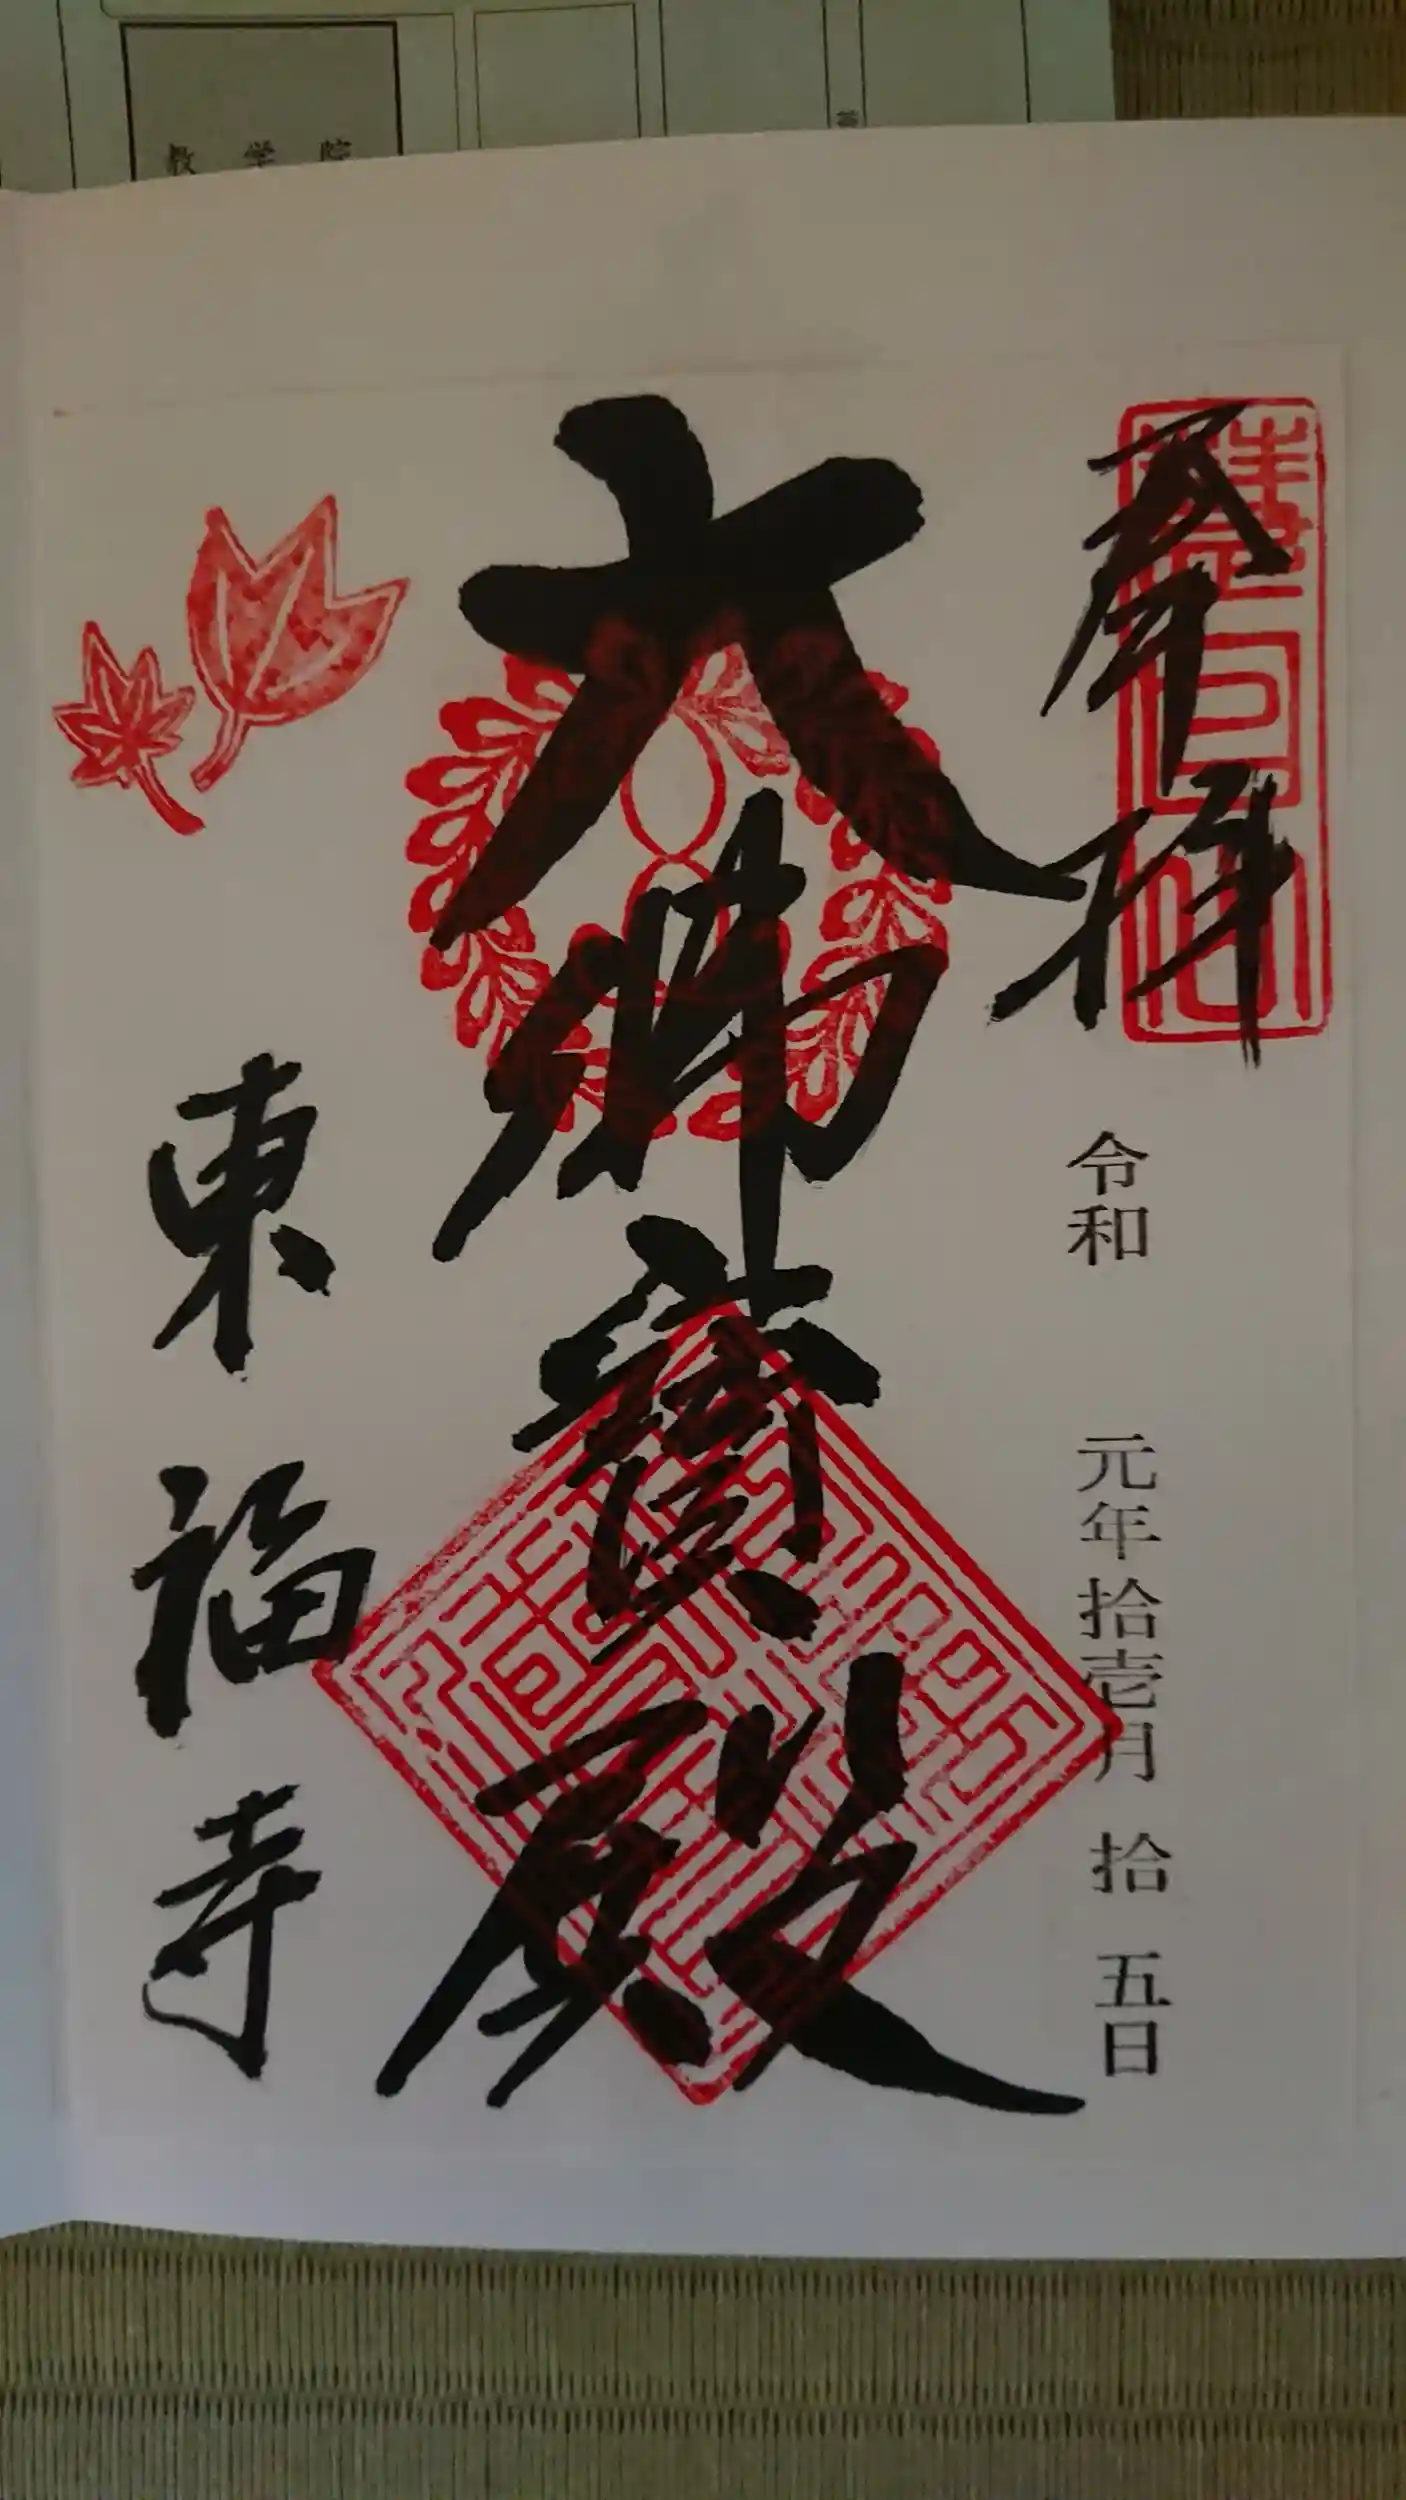 教学院
奉拝
令和 元年拾壱月 拾 五日
大佛寳殿
東福寺